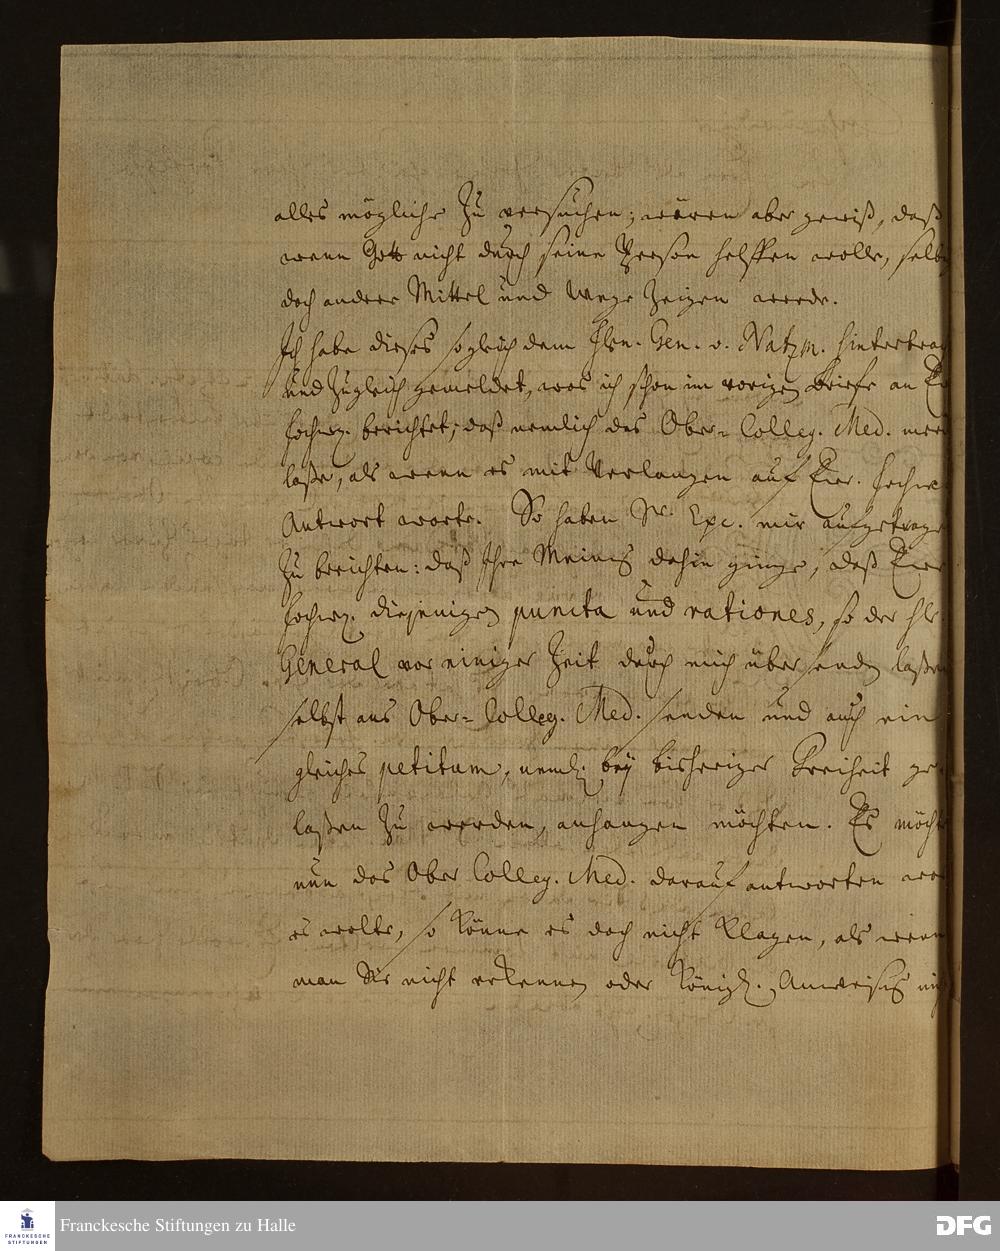 alles mögliche zu versuchen; wären aber gewiß, daß
wenn Gott nicht durch seine Person helffen wolle, selb
doch andere Mittel und Wege zeigen werde.
Ich habe dieses sogleich dem Hrn. Gen. v. Natzm. hinterbrac
und zugleich gemeldet, was ich schon im vorigen Briefe an Ew
Hochw. berichtet; daß nemlich das Ober-Colleg. Med. mer
laße, als wenn es mit Verlangen auf Ewr. Hochw
Antwort warte. So haben Sr. Exc. mir aufgetrage
zu berichten: daß Ihre Meinung dahin ginge, daß Ewr
Hochw. diejenigen puncta und rationes, so der Hr.
General vor einiger Zeit durch mich übersenden laßen
selbst ans Ober-Colleg. Med. senden und auch ein
gleiches petitum, neml. bey bisheriger Freiheit ge
laßen zu werden, anhangen möchten. Es möcht
nun das Ober Colleg. Med. darauf antworten was
es wolte, so könne es doch nicht klagen, als wenn
man Sie nicht erkennen oder Königl. Anweisung
Franckesche Stiftungen zu Halle
FRANCKESCHE STIFTUNGEN
DFG